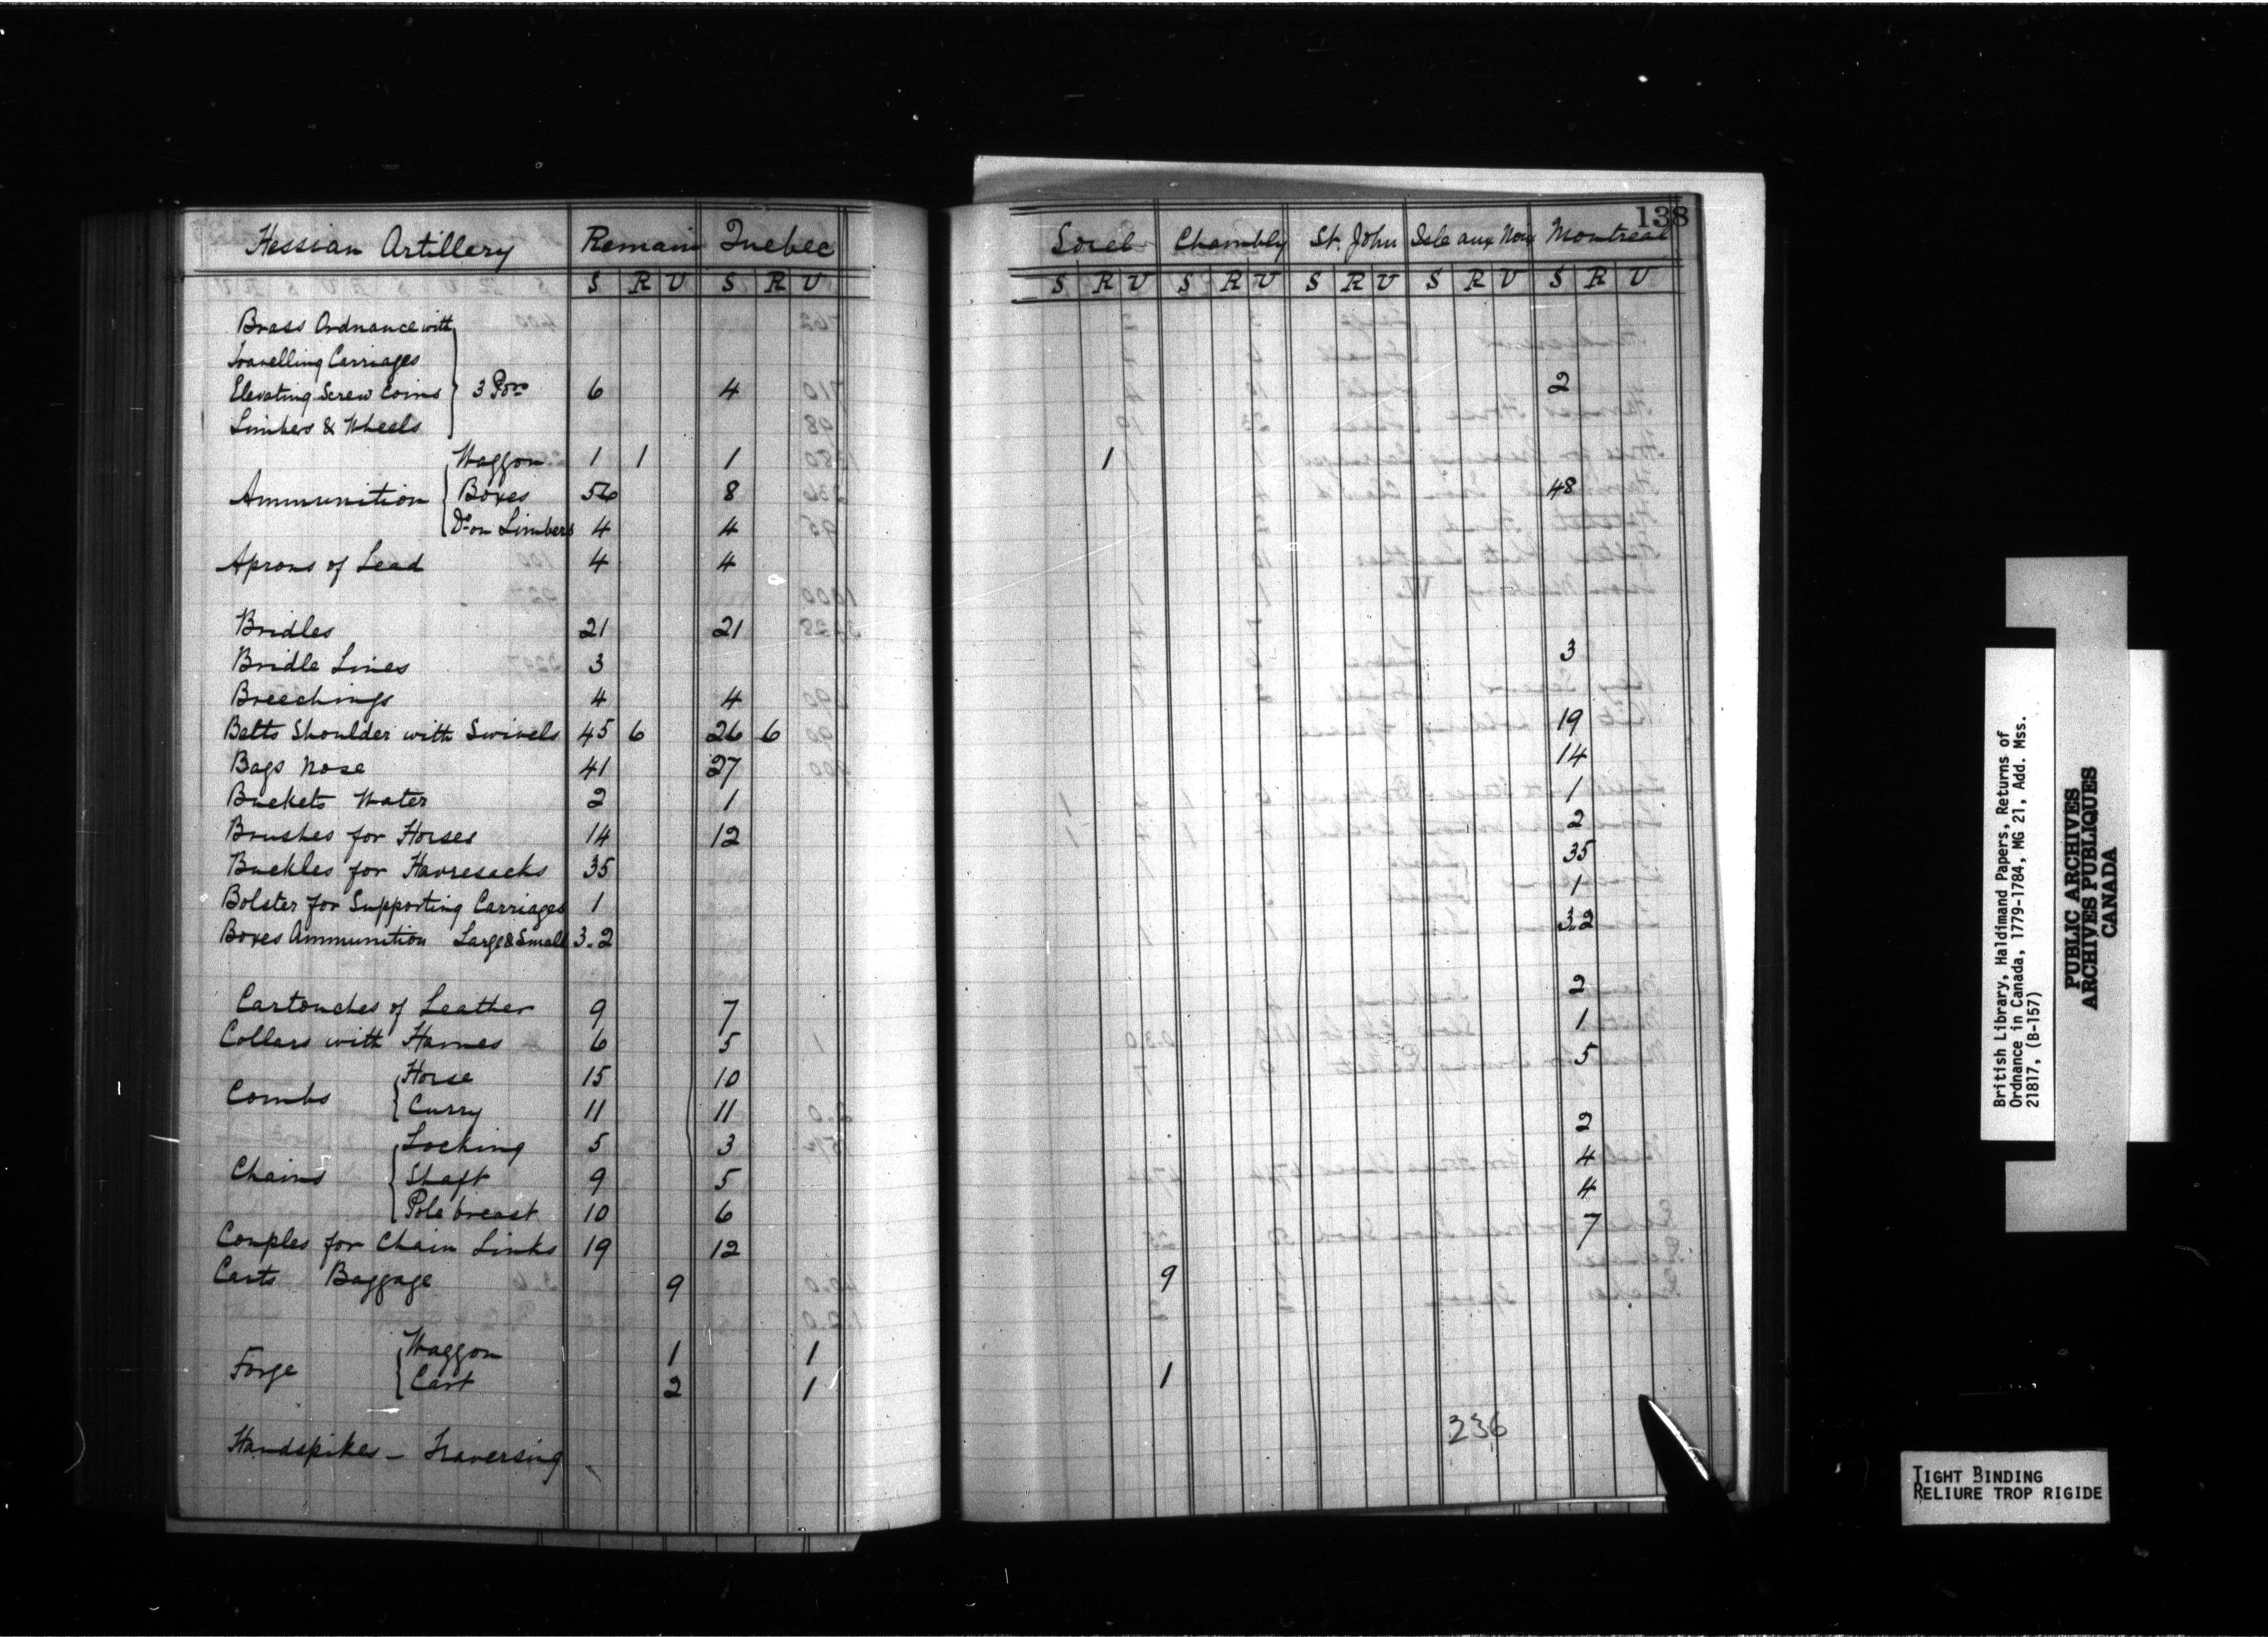 138
Hessian Artillery Remain Quebec Sorel Chambly St. John Isle aux Noix Montreal
S R U S R U S R U S R U S R U S R U S R U
Brass Ordnance with
Travelling Carriages
Elevating Screw Coins } 3 Pors 6 4 2
Limbers & Wheels
Waggon 1 1 1 1
Ammunition { Boxes 56 8 48
Do on Limbers 4 4
Aprons of Lead 4 4
Bridles 21 21
Bridle Lines 3 3
Breechings 4 4
Belts Shoulder with Swivels 45 6 26 6 19
Bags Nose 41 27 14
Buckets Water 2 1 1
Brushes for Horses 14 12 2
Buckles for Havresacks 35 35
Bolster for Supporting Carriages 1 1
Boxes Ammunition Large & Small 3.2 3.2
Cartouches of Leather 9 7 2
Collars with Hames 6 5 1
Combs { Horse 15 10 5
Curry 11 11
Chains { Locking 5 3 2
Shaft 9 5 4
Pole breast 10 6 4
Couples for Chain Links 19 12 7
Carts Baggage 9 9
Forge { Waggon 1 1
Cart 2 1 1
Handspikes - Traversing
236
British Library, Haldimand Papers, Returns of
Ordnance in Canada, 1779-1784, MG 21, Add. Mss.
21817, (B-157)
PUBLIC ARCHIVES
ARCHIVES PUBLIQUES
CANADA
TIGHT BINDING
RELIURE TROP RIGIDE